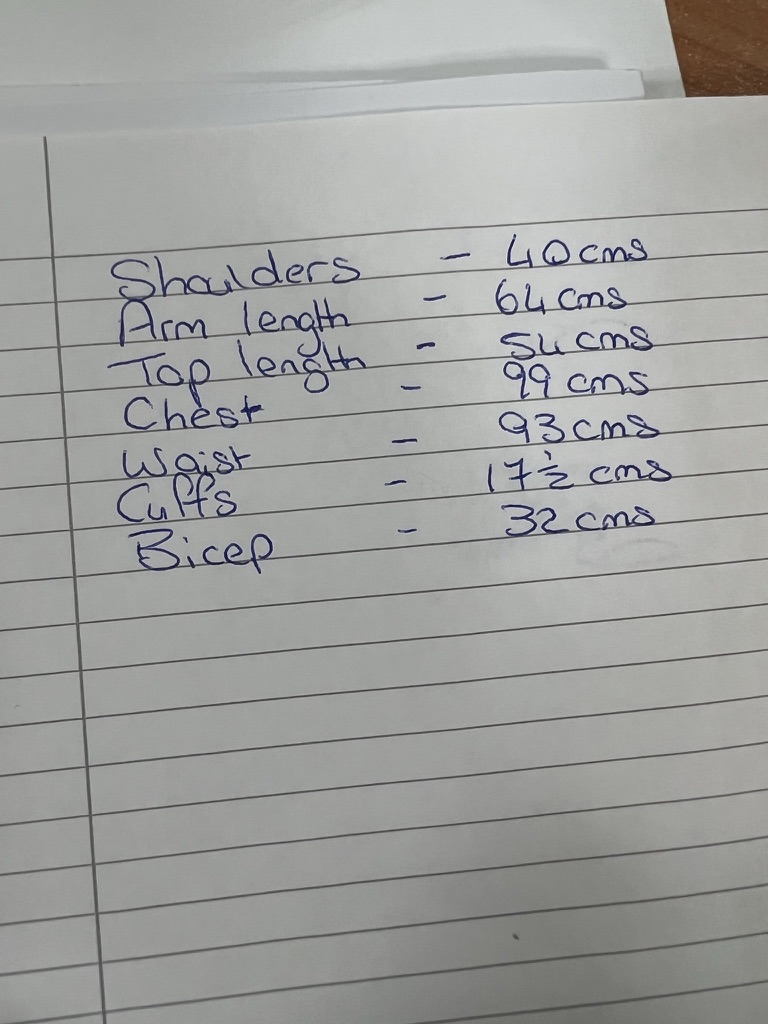 Shoulders - 40 cms
Arm length - 64 cms
Top length - 54 cms
Chest - 99 cms
Waist - 93 cms
Cuffs - 17 ½ cms
Bicep - 32 cms